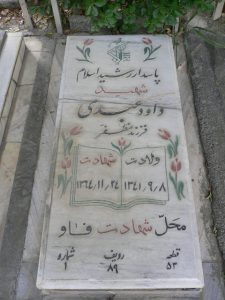 پاسدار رشید اسلام
شهید
داود عبدی
فرزند مظفر
ولادت شهادت
۱۳۴۱/۹/۸ ۱۳۶۴/۱۱/۲۴
محل شهادت فاو
قطعه ردیف شماره
۵۳ ۸۹ ۱